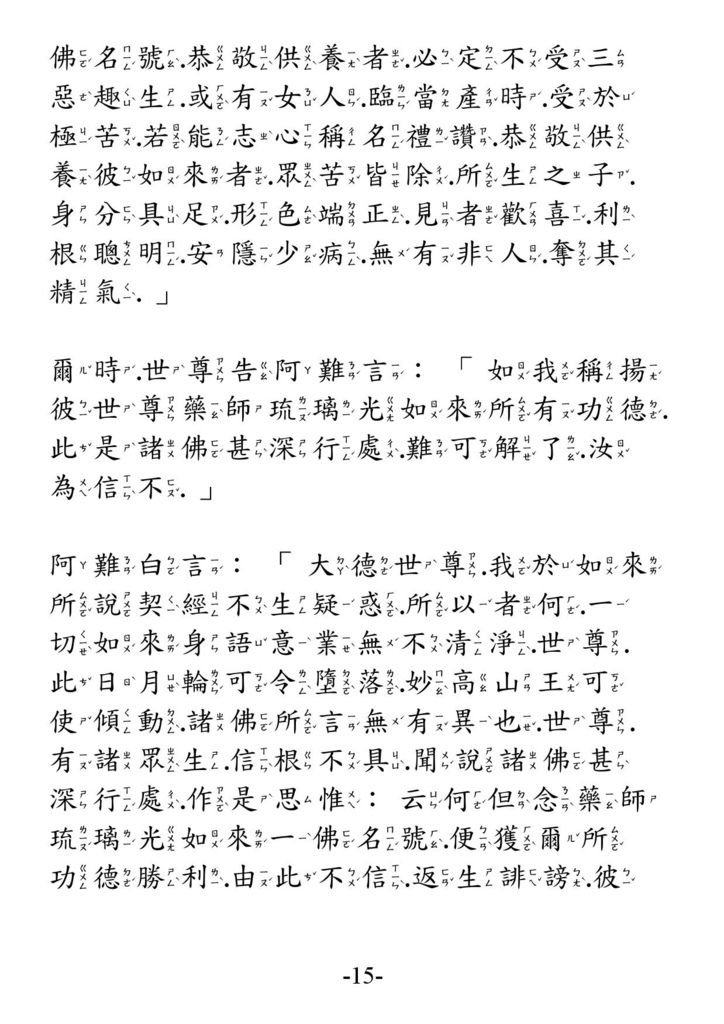 佛名號.恭敬供養者.必定不受三
惡趣生.或有女人.臨當產時.受於
極苦.若能志心稱名禮讚.恭敬供
養彼如來者.眾苦皆除.所生之子.
身分具足.形色端正.見者歡喜.利
根聰明.安隱少病.無有非人.奪其
精氣.」
爾時.世尊告阿難言：「如我稱揚
彼世尊藥師琉璃光如來所有功德.
此是諸佛甚深行處.難可解了.汝
為信不.」
阿難白言：「大德世尊.我於如來
所說契經不生疑惑.所以者何.一
切如來身語意業無不清淨.世尊.
此日月輪可令墮落.妙高山王可
使傾動.諸佛所言無有異也.世尊.
有諸眾生.信根不具.聞說諸佛甚
深行處.作是思惟：云何但念藥師
琉璃光如來一佛名號.便獲爾所
功德勝利.由此不信.返生誹謗.彼
-15-